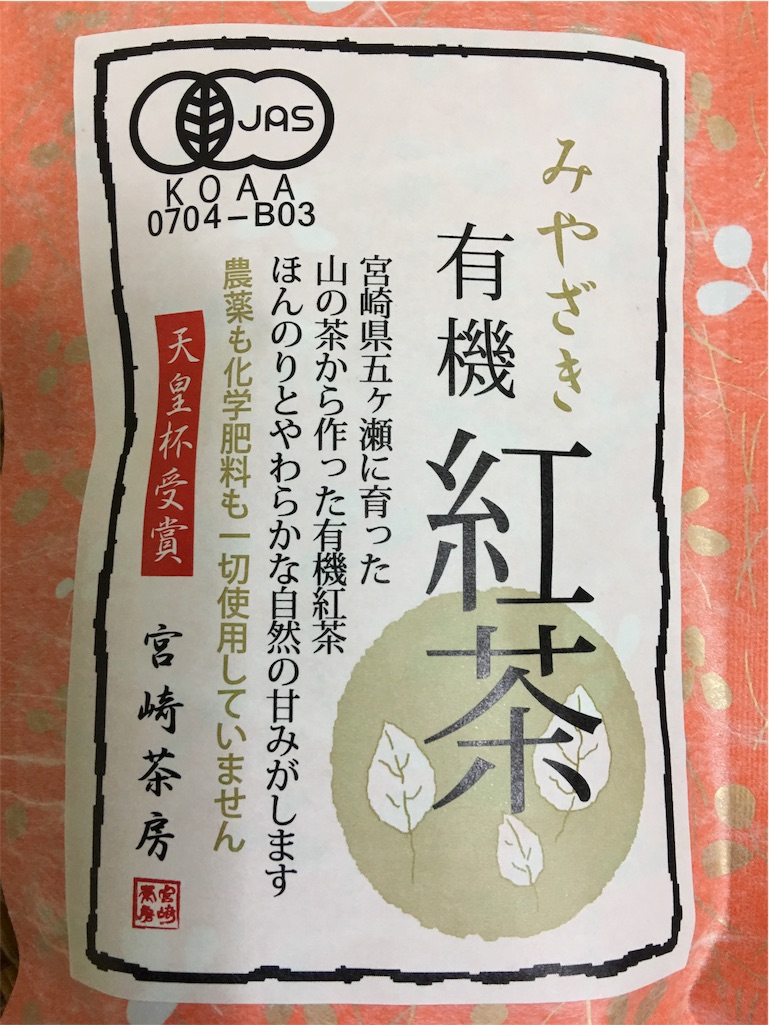 JAS
KOAA
0704-B03
みやざき
有機
紅茶
宮崎県五ヶ瀬に育った
山の茶から作った有機紅茶
ほんのりとやわらかな自然の甘みがします
農薬も化学肥料も一切使用していません
天皇杯受賞
宮崎茶房
宮崎
茶房